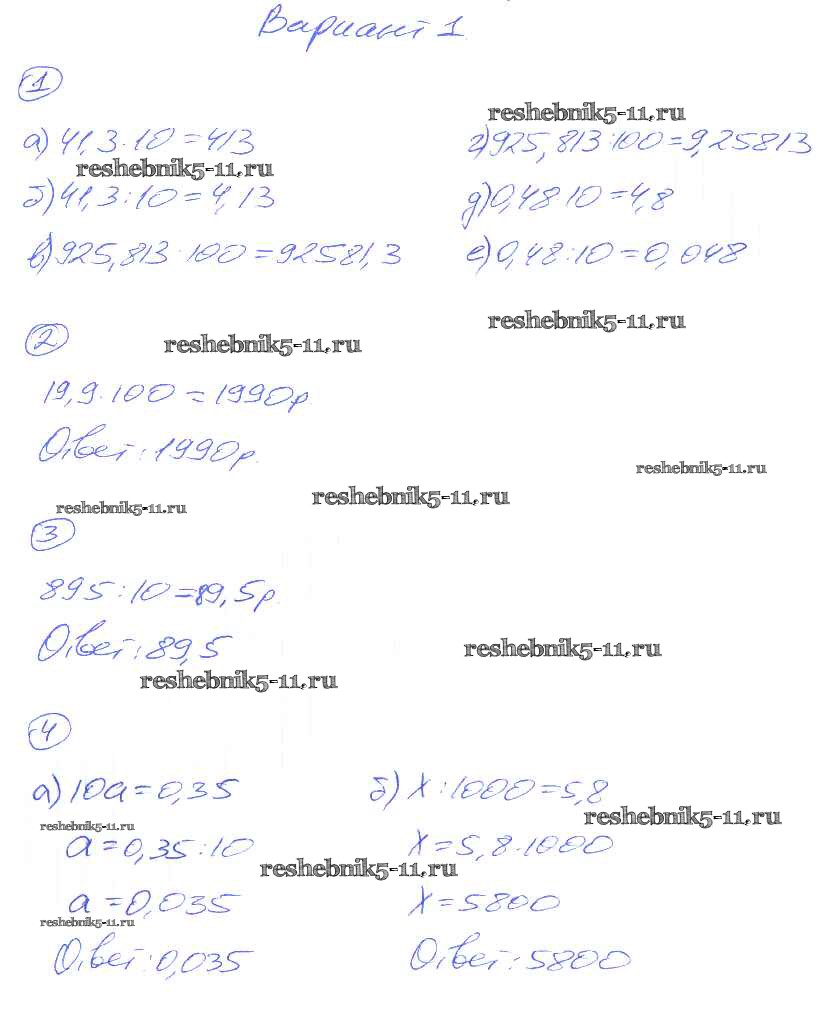 Вариант 1
1
reshebnik5-11.ru
а) 41,3·10=413
г) 925,813:100=9,25813
reshebnik5-11.ru
б) 41,3:10=4,13
д) 0,48·10=4,8
в) 925,813·100=92581,3
е) 0,48:10=0,048
reshebnik5-11.ru
2
reshebnik5-11.ru
19,9·100=1990р
Ответ: 1990р.
reshebnik5-11.ru
reshebnik5-11.ru
reshebnik5-11.ru
3
895:10=89,5р
Ответ: 89,5
reshebnik5-11.ru
reshebnik5-11.ru
4
а) 10a=0,35
б) x:1000=5,8
reshebnik5-11.ru
reshebnik5-11.ru
a=0,35:10
x=5,8·1000
reshebnik5-11.ru
a=0,035
x=5800
reshebnik5-11.ru
Ответ: 0,035
Ответ: 5800